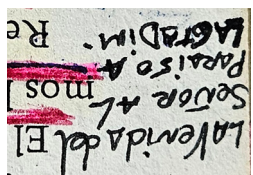 La Venida del
Señor AL
PARAISO A
LA 6TA DIM.
El
mos
Re